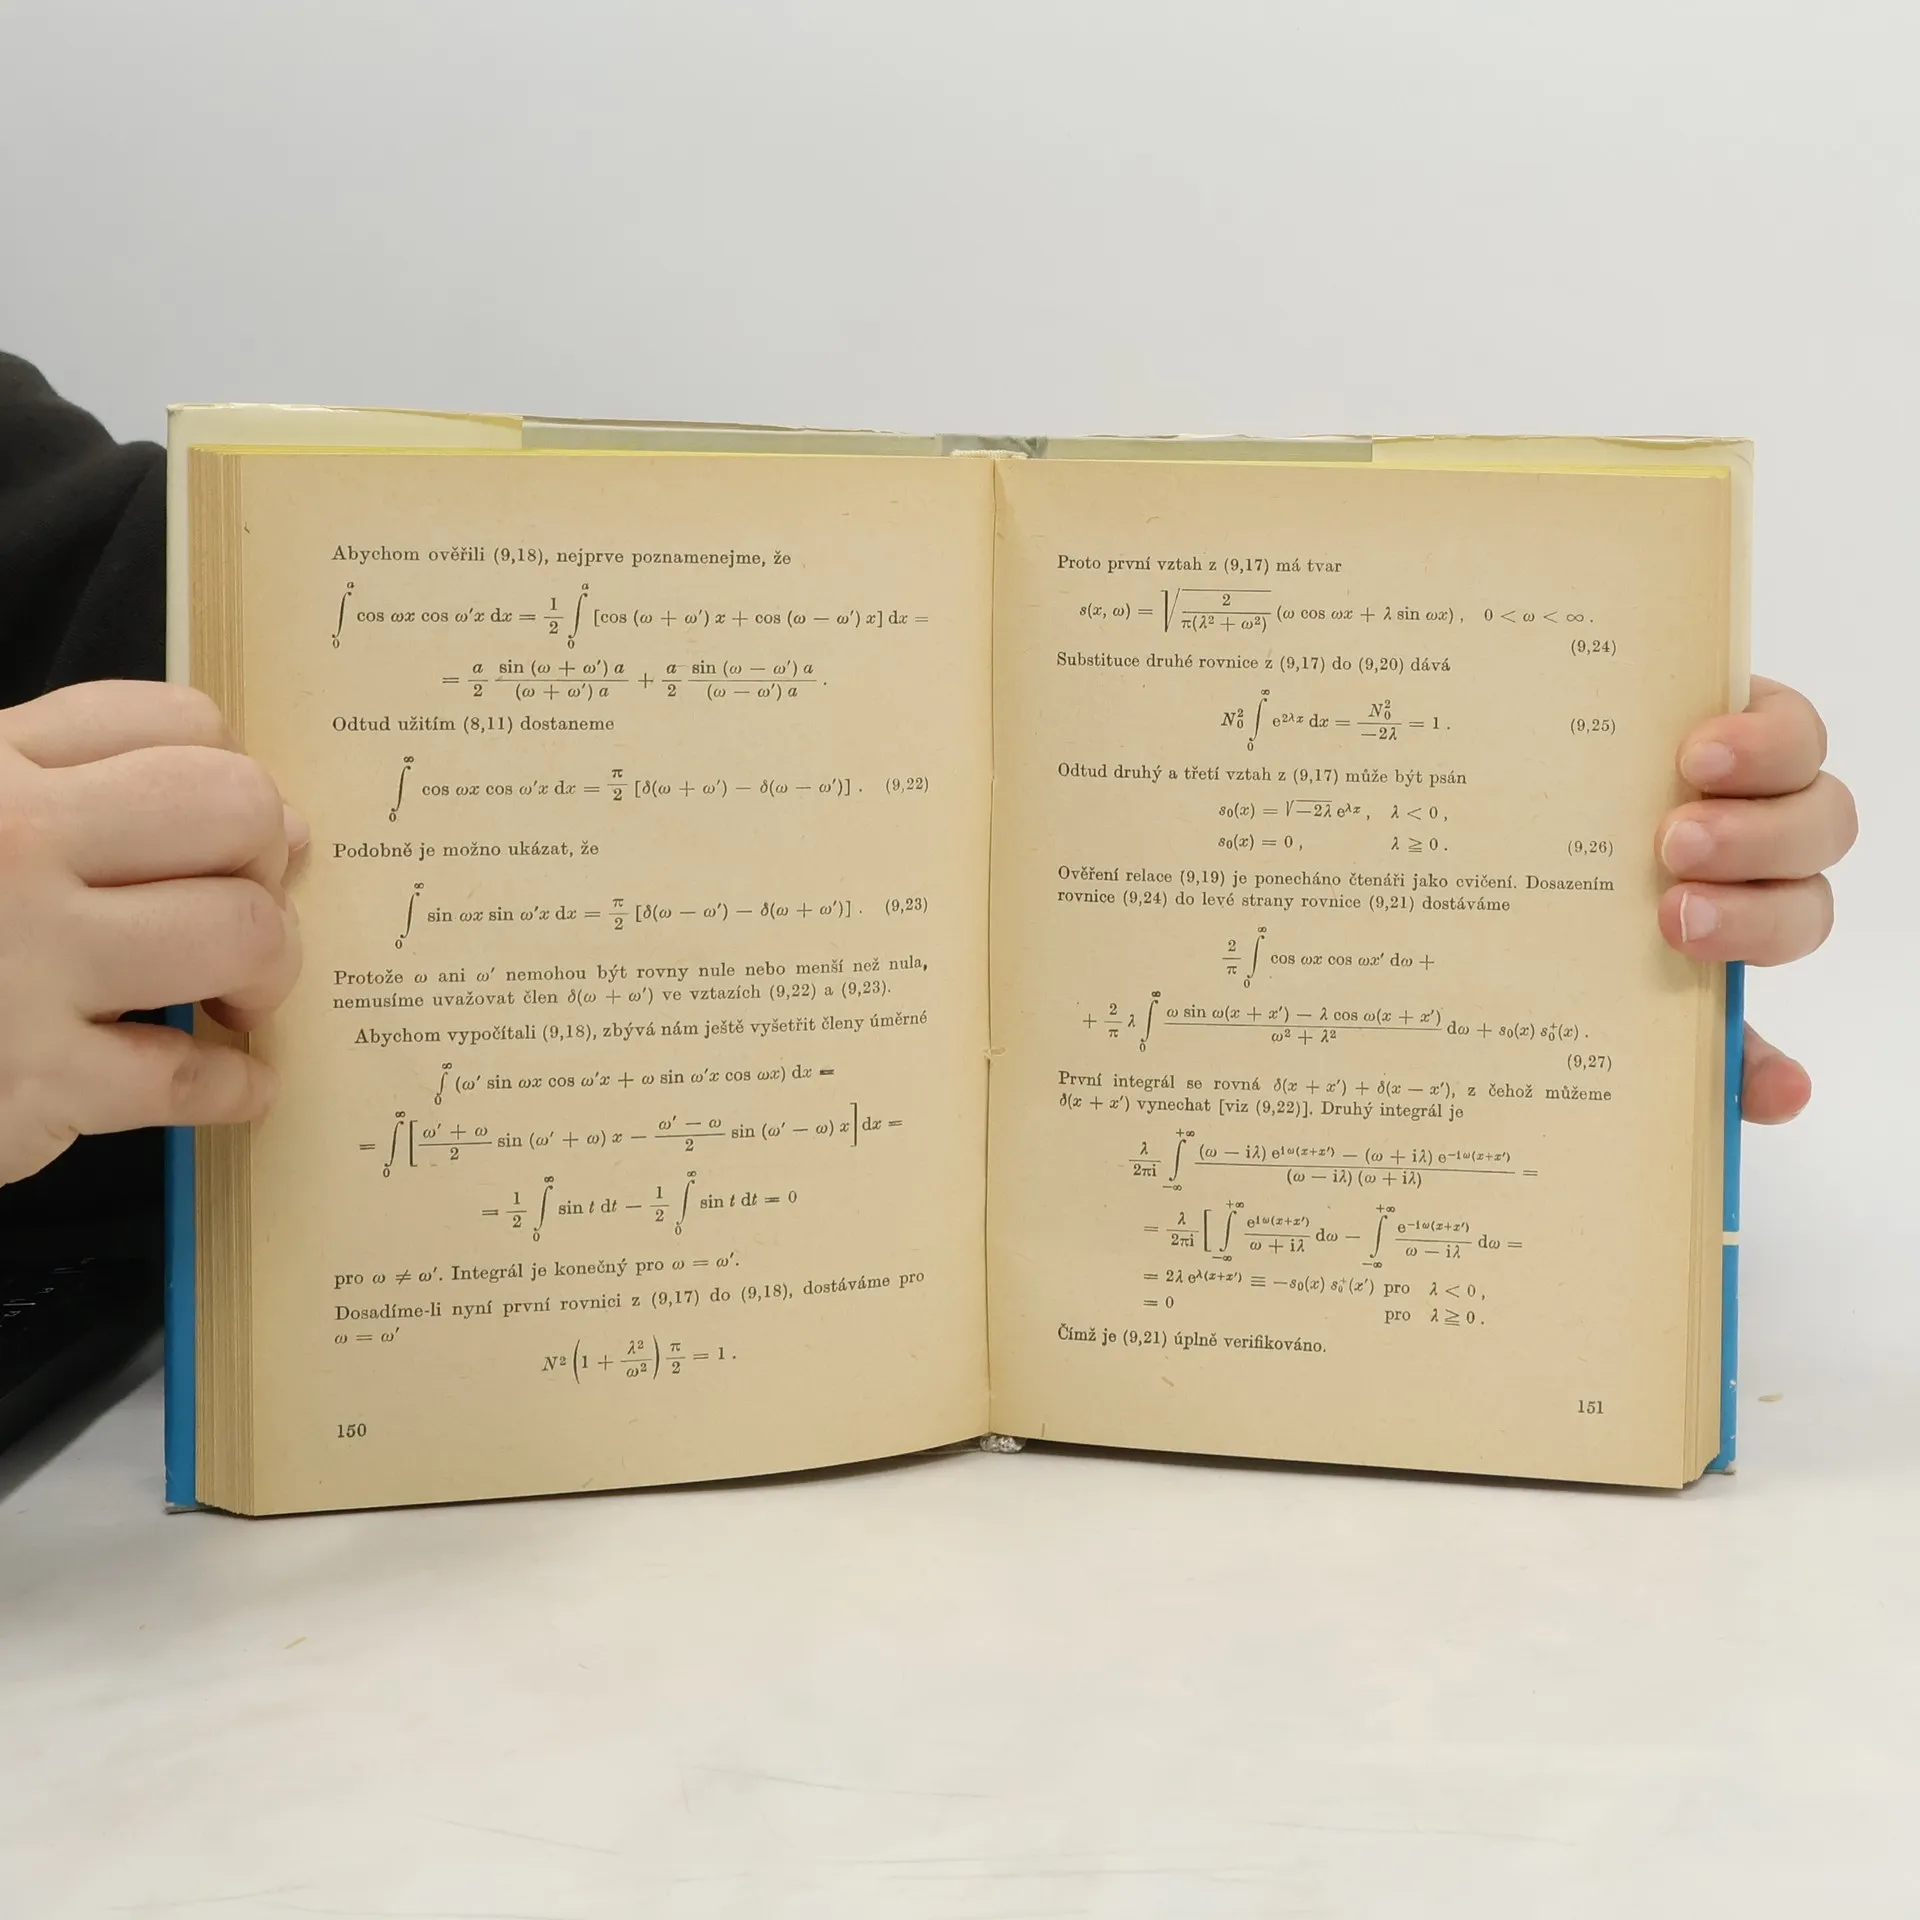 Abychom ověřili (9,18), nejprve poznamenejme, že
∫₀ᵃ cos ωx cos ω′x dx = 1/2 ∫₀ᵃ [cos (ω + ω′) x + cos (ω − ω′) x] dx =
= a/2 sin (ω + ω′) a / (ω + ω′) a + a/2 sin (ω − ω′) a / (ω − ω′) a .
Odtud užitím (8,11) dostaneme
∫₀^∞ cos ωx cos ω′x dx = π/2 [δ(ω + ω′) − δ(ω − ω′)] . (9,22)
Podobně je možno ukázat, že
∫₀^∞ sin ωx sin ω′x dx = π/2 [δ(ω − ω′) − δ(ω + ω′)] . (9,23)
Protože ω ani ω′ nemohou být rovny nule nebo menší než nula,
nemusíme uvažovat člen δ(ω + ω′) ve vztazích (9,22) a (9,23).
Abychom vypočítali (9,18), zbývá nám ještě vyšetřit členy úměrné
∫₀^∞ (ω′ sin ωx cos ω′x + ω sin ω′x cos ωx) dx =
= ∫₀^∞ [(ω′ + ω)/2 sin (ω′ + ω) x − (ω′ − ω)/2 sin (ω′ − ω) x] dx =
= 1/2 ∫₀^∞ sin t dt − 1/2 ∫₀^∞ sin t dt = 0
pro ω ≠ ω′. Integrál je konečný pro ω = ω′.
Dosadíme-li nyní první rovnici z (9,17) do (9,18), dostáváme pro
ω = ω′
N² (1 + λ²/ω²) π/2 = 1 .
150
Proto první vztah z (9,17) má tvar
s(x, ω) = √(2/π(λ² + ω²)) (ω cos ωx + λ sin ωx) , 0 < ω < ∞ .
(9,24)
Substituce druhé rovnice z (9,17) do (9,20) dává
N₀² ∫₀^∞ e^{2λx} dx = N₀²/−2λ = 1 . (9,25)
Odtud druhý a třetí vztah z (9,17) může být psán
s₀(x) = √−2λ e^{λx} , λ < 0 ,
s₀(x) = 0 , λ ≧ 0 . (9,26)
Ověření relace (9,19) je ponecháno čtenáři jako cvičení. Dosazením
rovnice (9,24) do levé strany rovnice (9,21) dostáváme
2/π ∫₀^∞ cos ωx cos ωx′ dω +
+ 2/π λ ∫₀^∞ (ω sin ω(x + x′) − λ cos ω(x + x′))/(ω² + λ²) dω + s₀(x) s₀⁺(x) .
(9,27)
První integrál se rovná δ(x + x′) + δ(x − x′), z čehož můžeme
δ(x + x′) vynechat [viz (9,22)]. Druhý integrál je
λ/2πi ∫_{−∞}^{+∞} ((ω − iλ) e^{iω(x+x′)} − (ω + iλ) e^{−iω(x+x′)})/((ω − iλ) (ω + iλ)) =
= λ/2πi [ ∫_{−∞}^{+∞} e^{iω(x+x′)}/(ω + iλ) dω − ∫_{−∞}^{+∞} e^{−iω(x+x′)}/(ω − iλ) dω =
= 2λ e^{λ(x+x′)} ≡ −s₀(x) s₀⁺(x′) pro λ < 0 ,
= 0 pro λ ≧ 0 .
Čímž je (9,21) úplně verifikováno.
151